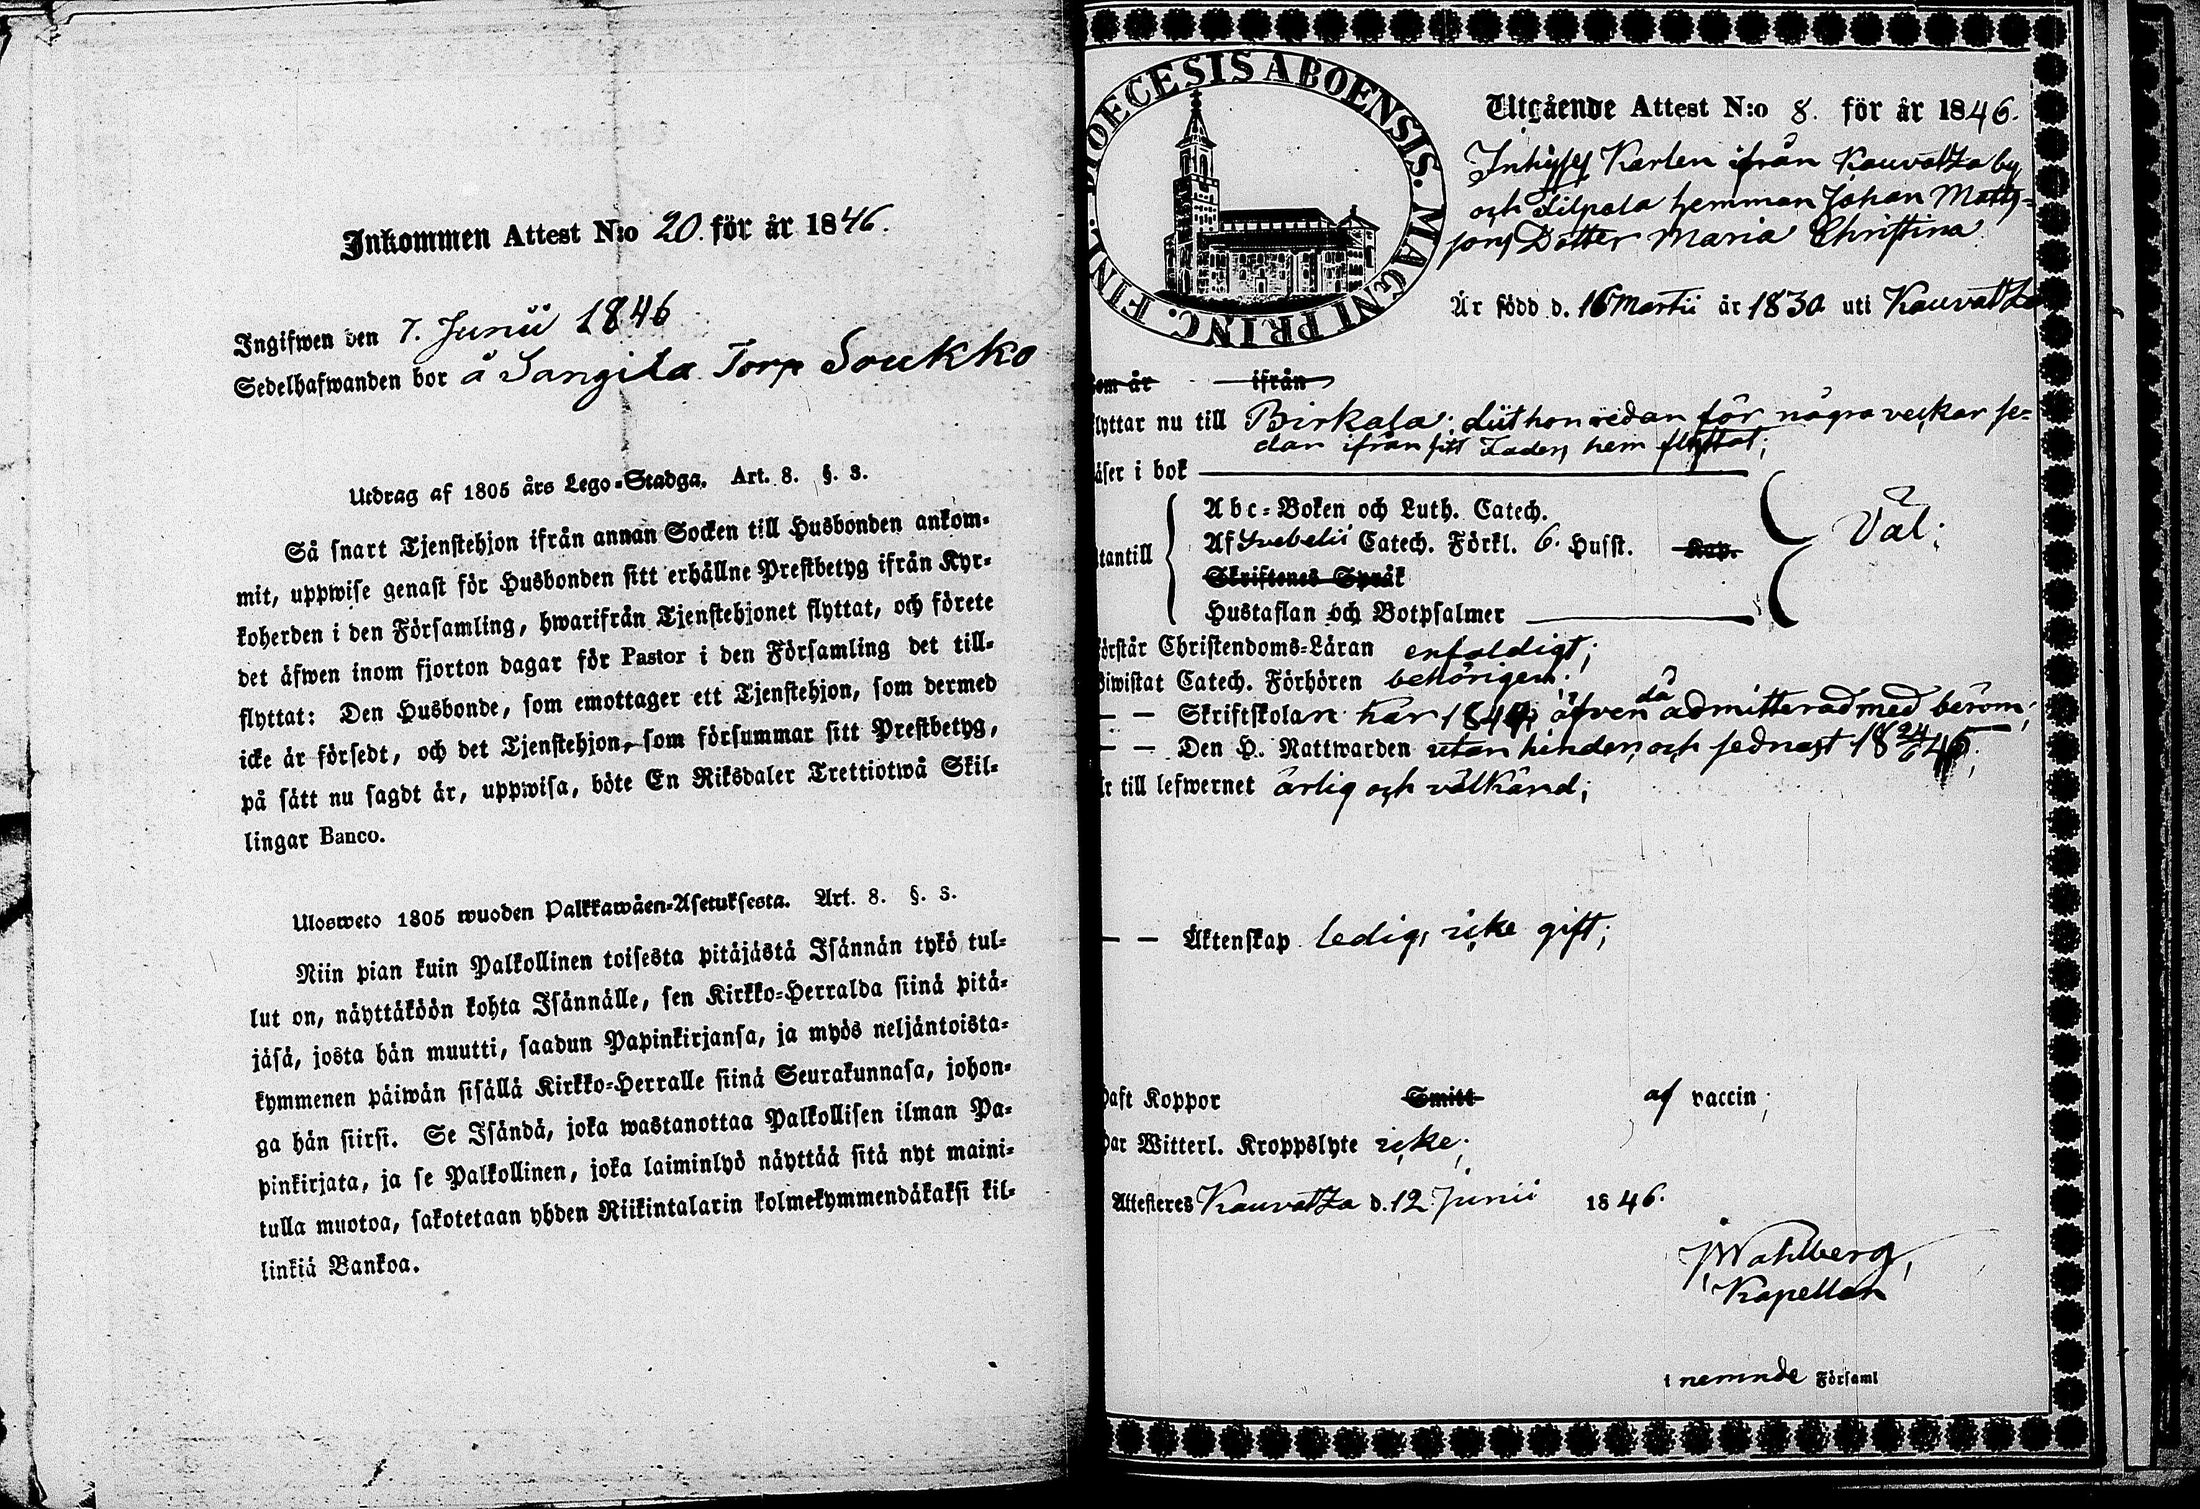 Inkommen Attest N:o 20. för år 1846.
Ingifwen den 7. Junii 1846
Sedelhafwanden bor å Sangila Torp Soukko
Utdrag af 1805 års Lego-Stadga. Art. 8. §. 3.
Så snart Tjenstehjon ifrån annan Socken till Husbonden ankom-
mit, uppwise genast för Husbonden sitt erhållne Prestbetyg ifrån Kyr-
koherden i den Församling, hwarifrån Tjenstehjonet flyttat, och förete
det äfwen inom fjorton dagar för Pastor i den Församling det till-
flyttat: Den Husbonde, som emottager ett Tjenstehjon, som dermed
icke är försedt, och det Tjenstehjon, som försummar sitt Prestbetyg,
på sätt nu sagdt är, uppwisa, böte En Riksdaler Trettiotwå Skil-
lingar Banco.
Ulosweto 1805 wuoden Palkkawäen-Asetuksesta. Art. 8. §. 3.
Niin pian kuin Palkollinen toisesta pitäjästä Isännän tykö tul-
lut on, näyttäköön kohta Isännälle, sen Kirkko-Herralda siinä pitä-
jäsä, josta hän muutti, saadun Papinkirjansa, ja myös neljäntoista-
kymmenen päiwän sisällä Kirkko-Herralle siinä Seurakunnasa, johon-
ga hän siirsi. Se Isändä, joka wastanottaa Palkollisen ilman Pa-
pinkirjata, ja se Palkollinen, joka laiminlyö näyttää sitä nyt maini-
tulla muotoa, sakotetaan yhden Riikintalarin kolmekymmendäkaksi kil-
linkiä Bankoa.
DIOECESIS ABOENSIS. MAGNI PRINC. FINL.
Utgående Attest N:o 8. för år 1846.
Inhyses Karlen ifrån Kauvatza by
och Filpala hemman Johan Matts-
sons Dotter Maria Christina
Är född d. 16 Martii år 1830 uti Kauvatza
Som är ifrån
flyttar nu till Birkala; dit hon redan för några veckor se-
dan ifrån sitt Faders hem flyttat;
läser i bok
utantill
Abc-Boken och Luth. Catech.
Af Svebelii Catech. Förkl. 6. Husst. Kap.
Skriftenes Språk
Hustaflan och Botpsalmer
Väl;
förstår Christendoms-Läran enfaldigt;
Biwistat Catech. Förhören behörigen;
— — Skriftskolan har 184 äfven då admitterad med beröm;
— — Den H. Nattwarden utan hinder, och sednast 18 24/6 45;
Är till lefwernet ärlig och välkänd;
— — Äktenskap ledig, icke gift;
Haft Koppor Smitt af vaccin;
Har Witterl. Kroppslyte icke;
Attesteres Kauvatza d. 12. Junii 1846.
J Wahlberg,
Kapellan
i nemnde Församl